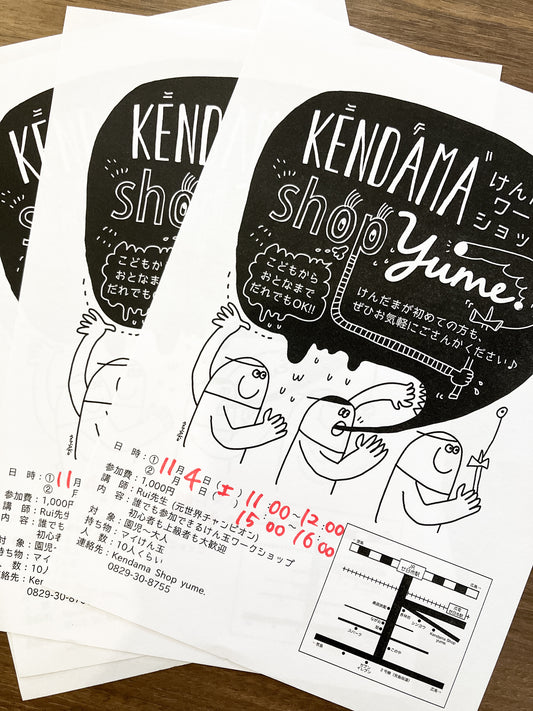 KENDAMA
shop
Yume.
けん
ワー
ショッ
こどもから
おとなまで
だれでもOK!!
けんだまが初めての方も、
ぜひお気軽にごさんかください♪
日 時：① 11月 4日（土） 11:00～12:00
② 月 日（ ） 15:00～16:00
参加費：1,000円
講 師：Rui先生（元世界チャンピオン）
内 容：誰でも参加できるけん玉ワークショップ
初心者も上級者も大歓迎
対 象：園児～大人
持ち物：マイけん玉
人 数：10人くらい
連絡先：Kendama Shop yume.
0829-30-8755
KEND
sho
こどもから
おとなまで
だれでもOK!!
日 時：① 11
②
参加費：1,000円
講 師：Rui先生
内 容：誰でも
初心者
対 象：園児
持ち物：マイ
人 数：10人
連絡先：Ker
0829-30
KE
sh
こどもか
おとなま
だれでもO
JR
廿日市駅
Kendama Shop
yume.